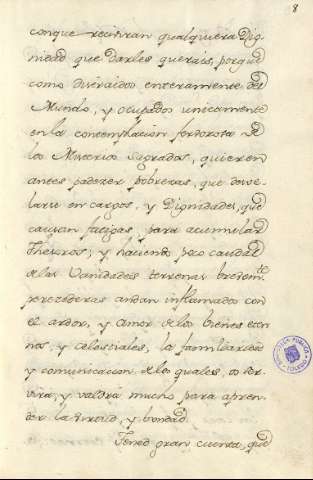 8
conque recivirán qualquiera Dig
nidad que darles querais, porque
como divididos enteramente del
Mundo, y ocupados unicamente
en la contemplacion fervorosa de
los Misterios Sagrados, quieren
antes padezer pobrezas, que desve-
larse en cargos, y Dignidades, que
causan fatigas, para acumular
Thesoros; y haciendo poco caudal
de las Vanidades terrenas bredemte
perezederas andan inflamados con
el ardor, y amor de los bienes eter
nos, y celestiales, la familiaridad
y comunicacion de los quales, os ser-
virá, y valdrá mucho para apren-
der la virtud, y bondad.
Tened gran cuenta, que